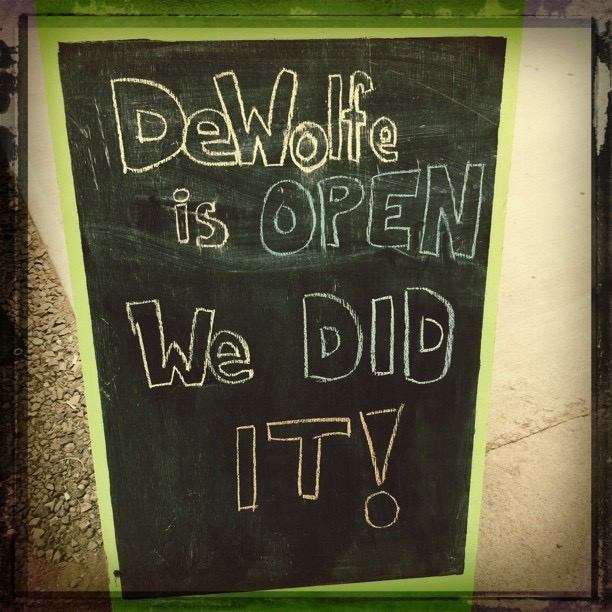 DeWolfe
is OPEN
We DID
IT!